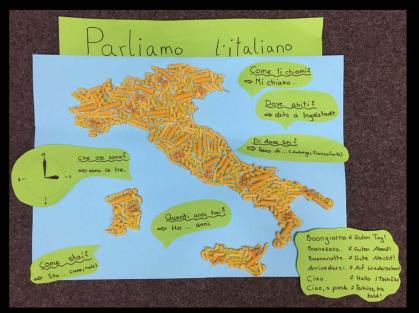 Parliamo l'italiano
Come ti chiami?
⇒ Mi chiamo...
Dove abiti?
⇒ abito a Ingolstadt
Di dove sei?
⇒ Sono di ...
Che ore sono?
⇒ sono le tre.
Quanti anni hai?
⇒ Ho ... anni
Come stai?
⇒ Sto ...
Buongiorno ≙ Guten Tag!
Buonasera. ≙ Guten Abend!
Buonanotte ≙ Gute Nacht!
Arrivederci. ≙ Auf Wiedersehen!
Ciao. ≙ Hallo / Tschüss
Ciao, a presto ≙ Tschüss, bis
bald!